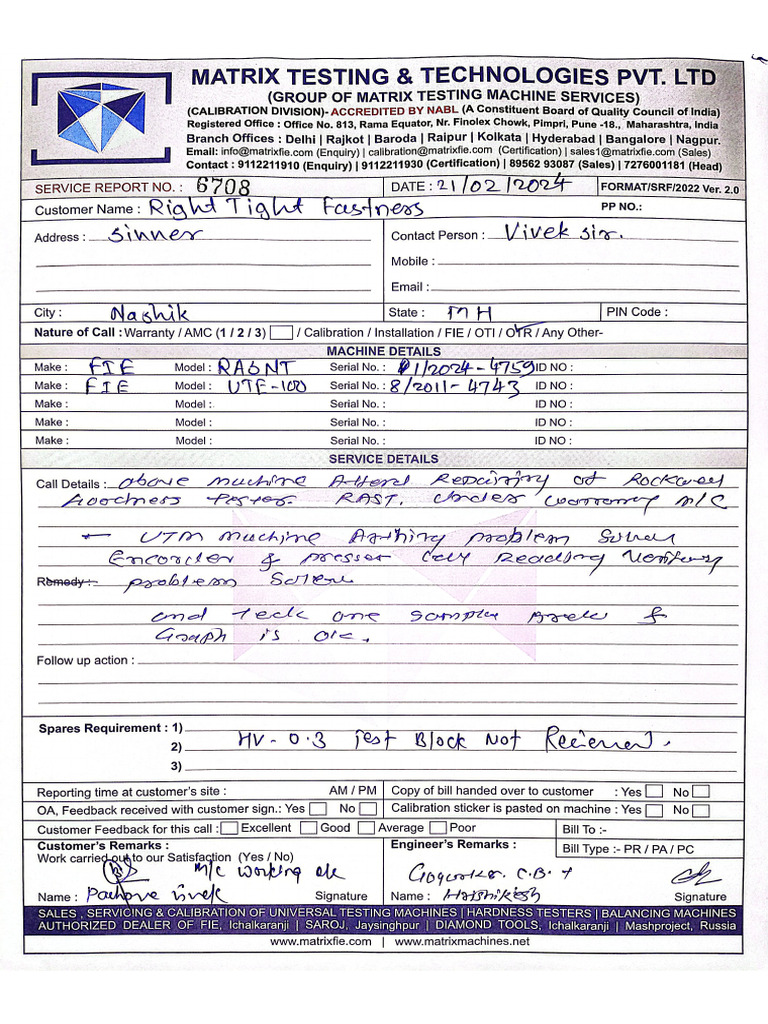 MATRIX TESTING & TECHNOLOGIES PVT. LTD
(GROUP OF MATRIX TESTING MACHINE SERVICES)
(CALIBRATION DIVISION)- ACCREDITED BY NABL (A Constituent Board of Quality Council of India)
Registered Office : Office No. 813, Rama Equator, Nr. Finolex Chowk, Pimpri, Pune -18., Maharashtra, India
Branch Offices : Delhi | Rajkot | Baroda | Raipur | Kolkata | Hyderabad | Bangalore | Nagpur.
Email: info@matrixfie.com (Enquiry) | calibration@matrixfie.com (Certification) | sales1@matrixfie.com (Sales)
Contact : 9112211910 (Enquiry) | 9112211930 (Certification) | 89562 93087 (Sales) | 7276001181 (Head)
SERVICE REPORT NO. : 6708 DATE : 21/02/2024 FORMAT/SRF/2022 Ver. 2.0
Customer Name : Right Tight Fastners PP NO.:
Address : Sinner Contact Person : Vivek sir.
Mobile :
Email :
City : Nashik State : MH PIN Code :
Nature of Call : Warranty / AMC (1 / 2 / 3) / Calibration / Installation / FIE / OTI / OTR / Any Other-
MACHINE DETAILS
Make : FIE Model : RASNT Serial No. : 1/2024-4759 ID NO :
Make : FIE Model : UTE-100 Serial No. : 8/2011-4743 ID NO :
Make : Model : Serial No. : ID NO :
Make : Model : Serial No. : ID NO :
Make : Model : Serial No. : ID NO :
SERVICE DETAILS
Call Details : above machine Attend Repairing of
RAST. Under m/c
UTM machine problem
& Reading
Remedy :- problem
and one sample &
Graph is ok.
Follow up action :
Spares Requirement : 1)
2) HV-0.3 Test Block Not
3)
Reporting time at customer's site : AM / PM Copy of bill handed over to customer : Yes No
OA, Feedback received with customer sign.: Yes No Calibration sticker is pasted on machine : Yes No
Customer Feedback for this call : Excellent Good Average Poor Bill To :-
Customer's Remarks : Engineer's Remarks : Bill Type :- PR / PA / PC
Work carried out to our Satisfaction (Yes / No)
M/c working ok
Name : vivek Signature Name : Signature
SALES , SERVICING & CALIBRATION OF UNIVERSAL TESTING MACHINES | HARDNESS TESTERS | BALANCING MACHINES
AUTHORIZED DEALER OF FIE, Ichalkaranji | SAROJ, Jaysinghpur | DIAMOND TOOLS, Ichalkaranji | Mashproject, Russia
www.matrixfie.com | www.matrixmachines.net